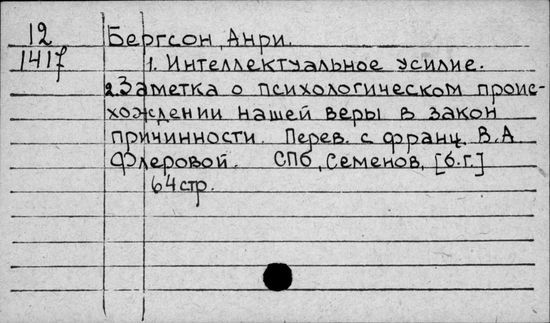 12 Бергсон, Анри.
1417 1. Интеллектуальное усилие.
2. Заметка о психологическом проис-
хождении нашей веры в закон
причинности. Перев. с франц. В.А
Флеровой. СПб, Семенов, [б.г.]
64 стр.